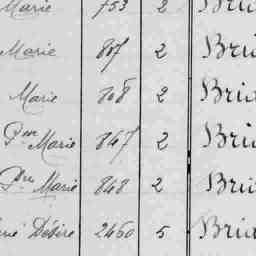 Marie 753 2 Bri
Marie 807 2 Bri
Marie 808 2 Bria
Pre Marie 847 2 Bria
Pre Marie 848 2 Bri
Désiré 2460 5 Bria